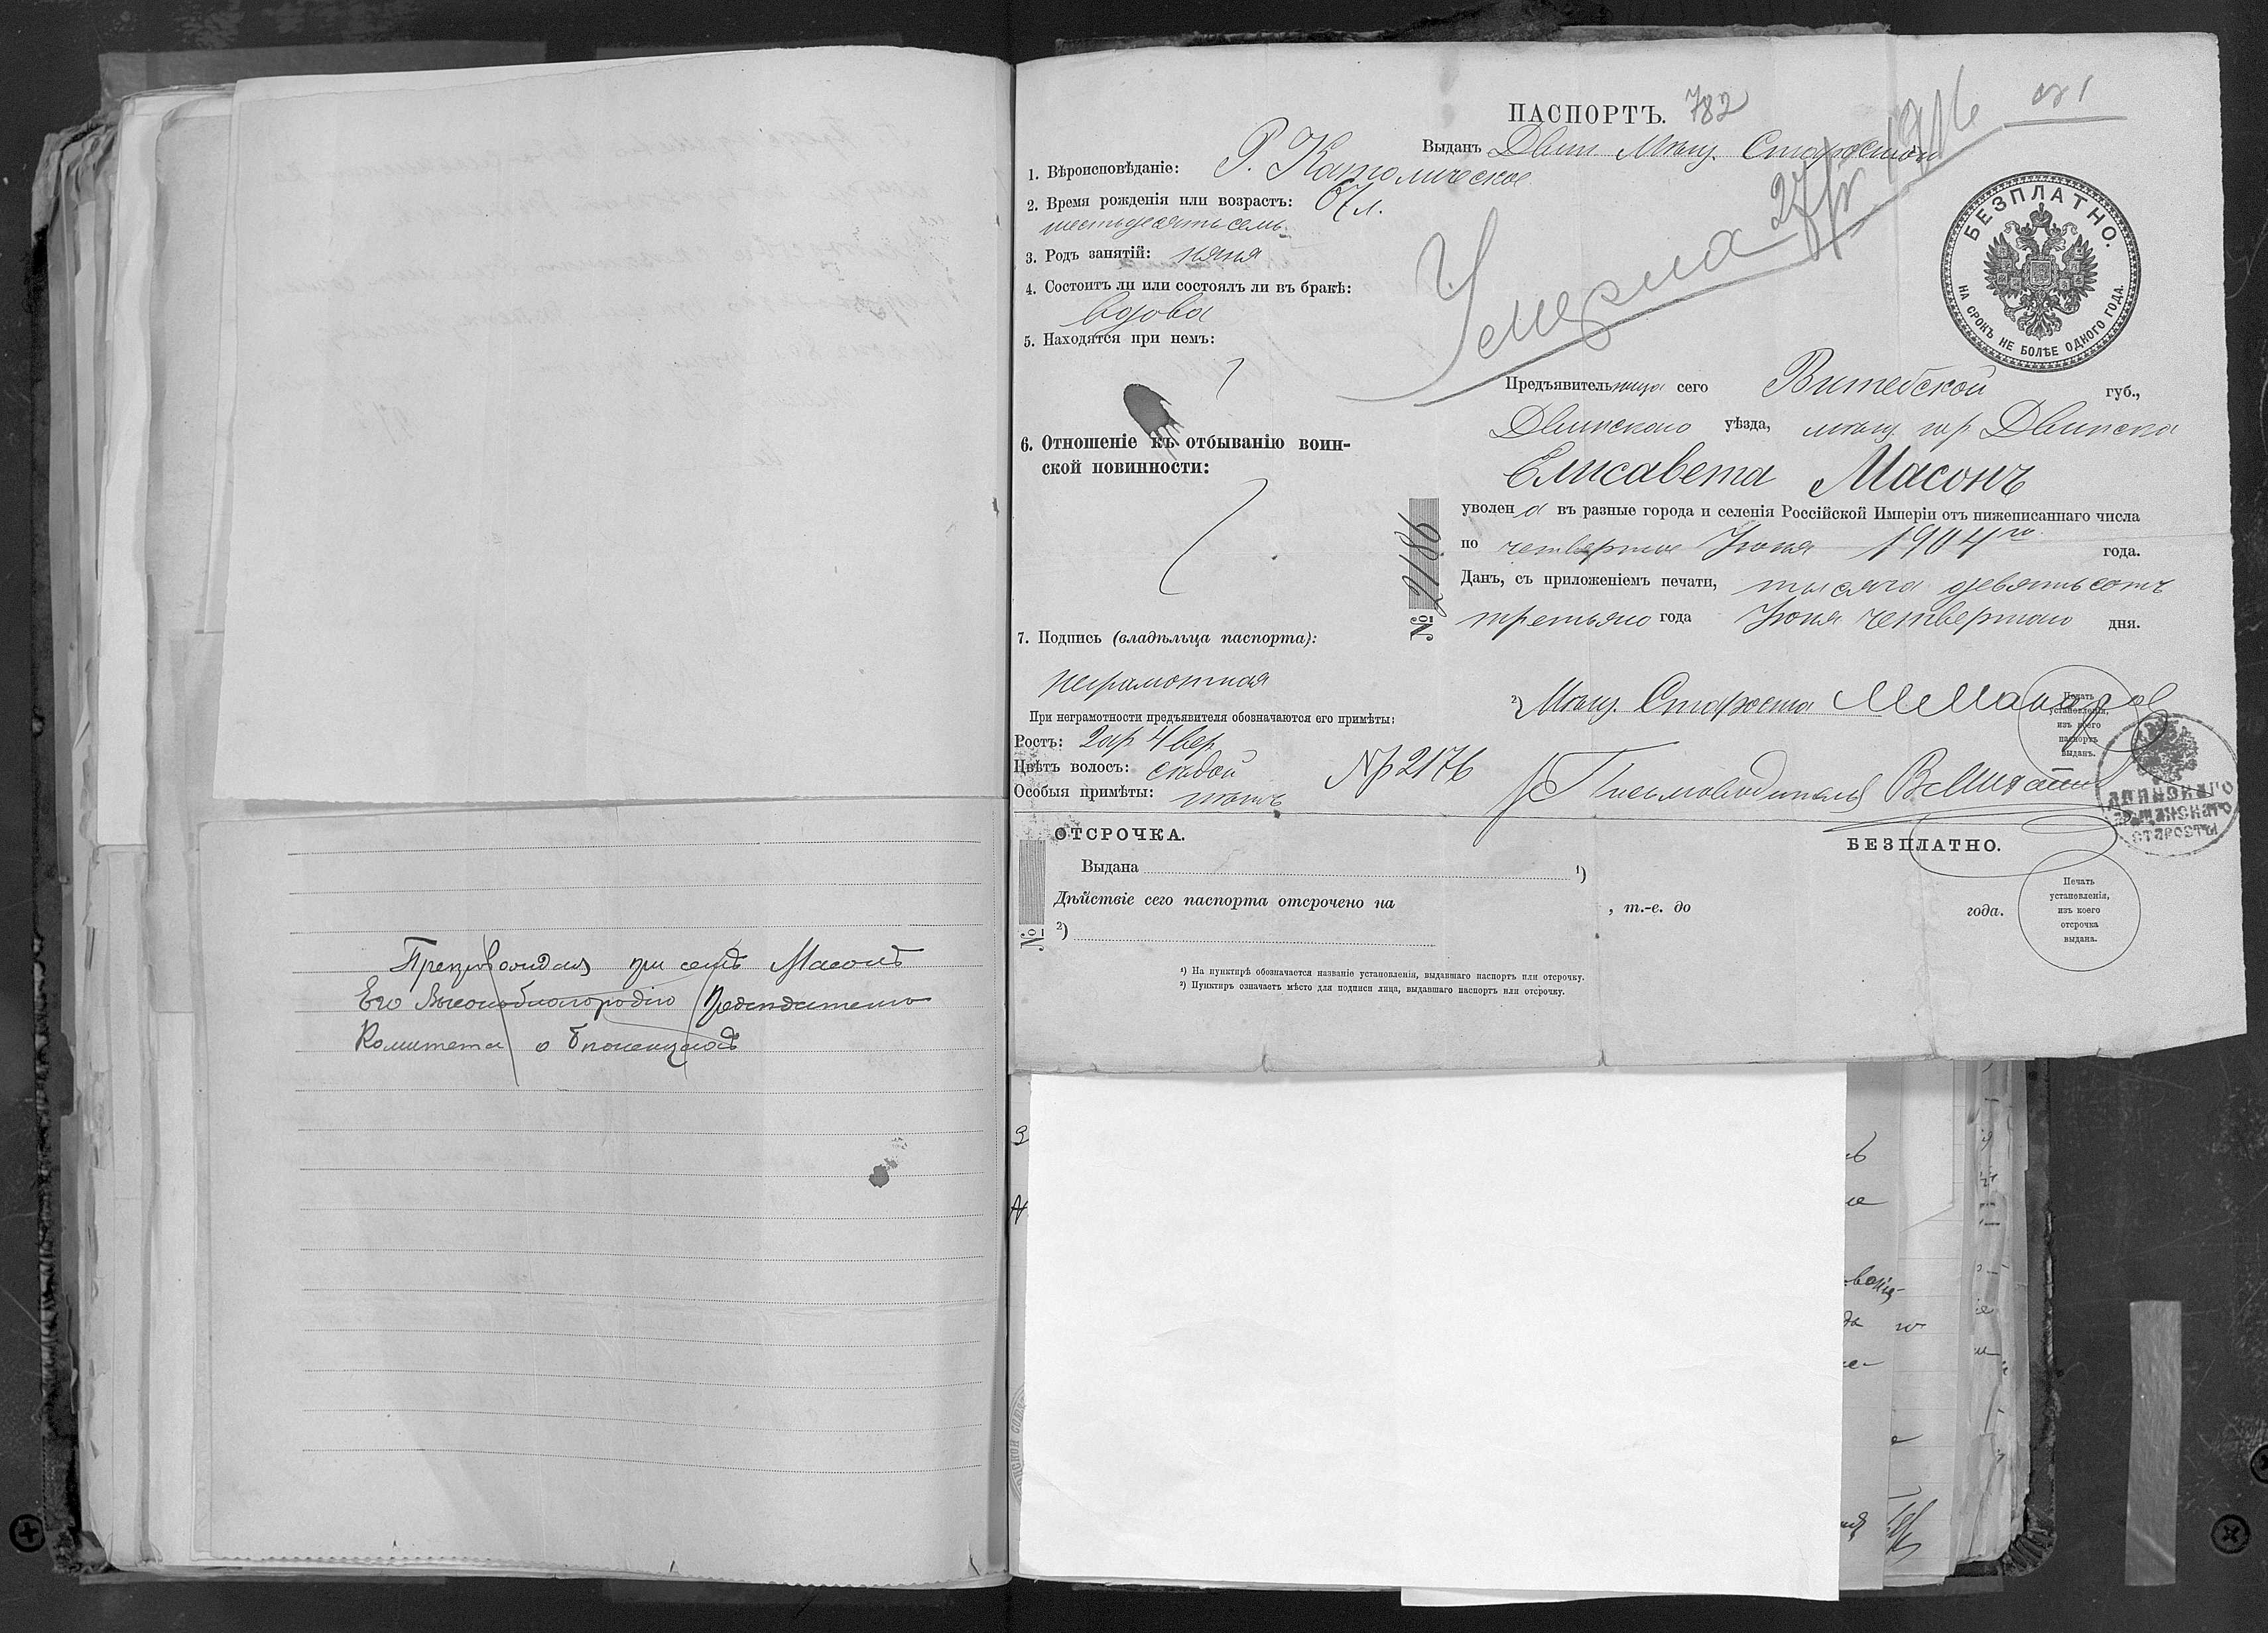 Препровождая при семъ Масонъ
Его Высокоблагородію Предсѣдателю
Комитета о
ПАСПОРТЪ. 782
Выданъ Двин. Мѣщ. Старостой
1. Вѣроисповѣданіе: Р. Католическое
2. Время рожденія или возрастъ: 67 л.
шестьдесятъ семь
3. Родъ занятій: няня
4. Состоитъ ли или состоялъ ли въ бракѣ:
вдова
5. Находятся при немъ:
6. Отношеніе къ отбыванію воин-
ской повинности:
7. Подпись (владѣльца паспорта):
неграмотная
При неграмотности предъявителя обозначаются его примѣты:
Ростъ: 2 ар 4 вер
Цвѣтъ волосъ: сѣдой
Особыя примѣты: нѣтъ
№ 2176
Умерла 27/IV 1916
БЕЗПЛАТНО.
НА СРОКЪ НЕ БОЛѢЕ ОДНОГО ГОДА.
Предъявительница сего Витебской губ.,
Двинскаго уѣзда, мѣщ. гор. Двинска
Елисавета Масонъ
уволена въ разные города и селенія Россійской Имперіи отъ нижеписаннаго числа
по четвертое Іюня 1904 го года.
Данъ, съ приложеніемъ печати, тысяча девятьсотъ
третьяго года Іюня четвертаго дня.
№ 2186
2) Мѣщ. Староста
Печать
установленія,
изъ коего
паспортъ
выданъ.
Письмоводитель
ДВИНСКАГО
МѢЩАНСКАГО
СТАРОСТЫ
ОТСРОЧКА.
БЕЗПЛАТНО.
Выдана 1)
Дѣйствіе сего паспорта отсрочено на , т.-е. до года.
№
2)
Печать
установленія,
изъ коего
отсрочка
выдана.
1) На пунктирѣ обозначается названіе установленія, выдавшаго паспортъ или отсрочку.
2) Пунктиръ означаетъ мѣсто для подписи лица, выдавшаго паспортъ или отсрочку.